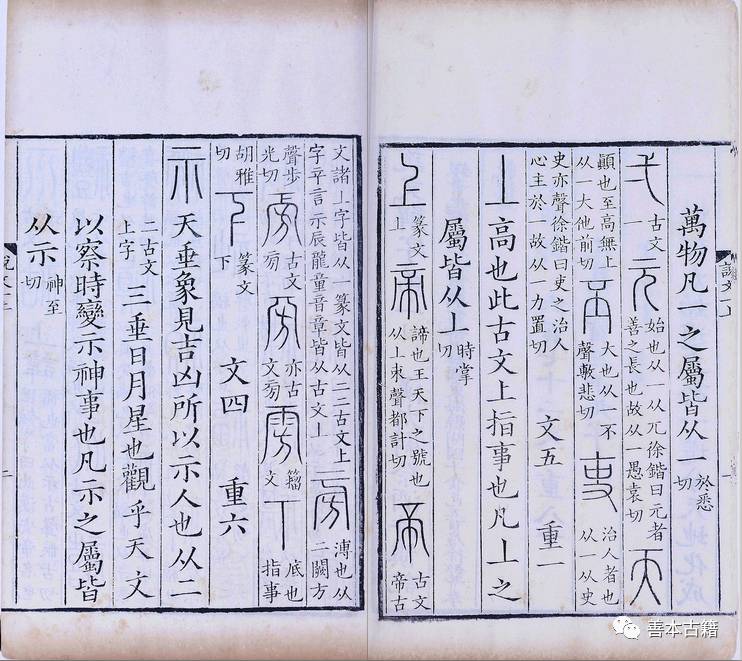 萬物凡一之屬皆从一於悉切
弌古文一元始也从一从兀徐鍇曰元者善之長也故从一愚袁切天
顚也至高無上从一大他前切丕大也从一不聲敷悲切吏治人者也从一从史
史亦聲徐鍇曰吏之治人心主於一故从一力置切文五重一
丄高也此古文上指事也凡丄之
屬皆从丄時掌切
上篆文上帝諦也王天下之號也从丄朿聲都計切帝古文帝古
文諸丄字皆从一篆文皆从二二古文上字䇂言示辰龍童音章皆从古文丄旁溥也从二闕方
聲步光切㫄古文㫄亦古文㫄雱籒文丅底也指事
胡雅切下篆文下文四重六
示天垂象見吉凶所以示人也从二
二古文上字三垂日月星也觀乎天文
以察時變示神事也凡示之屬皆
从示神至切
善本古籍